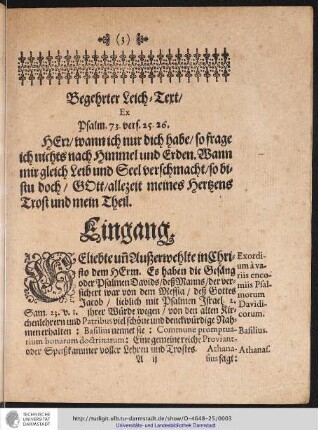 (3)
Begehrter Leich-Text/
Ex
Psalm. 73. vers. 25. 26.
HErr/ wann ich nur dich habe/ so frage
ich nichts nach Himmel und Erden. Wann
mir gleich Leib und Seel verschmacht/ so bi-
stu doch/ GOtt/ allezeit meines Hertzens
Trost und mein Theil.
Eingang.
GEliebte uñ Außerwehlte in Chri-
sto dem HErrn. Es haben die Gesäng
oder Psalmen Davids/ deß Manns/ der ver-
sichert war von dem Messia/ deß Gottes
Jacob/ lieblich mit Psalmen Israel 2.
Sam. 23. v. 1. ihrer Würde wegen/ von den alten Kir-
chenlehrern und Patribus viel schöne und denckwürdige Nah-
men erhalten: Basilius nennet sie: Commune promptua-
rium bonarum doctrinarum: Eine gemeine reiche Proviant-
oder Speißkammer voller Lehren und Trostes. Athana-
A ij
sius sagt:
Exordi-
um à va-
riis enco-
miis Psal-
morum
Davidi-
corum.
Basilius.
Athanas.
TECHNISCHE
UNIVERSITÄT
DARMSTADT
http://tudigit.ulb.tu-darmstadt.de/show/O-4648-25/0003
Universitäts- und Landesbibliothek Darmstadt